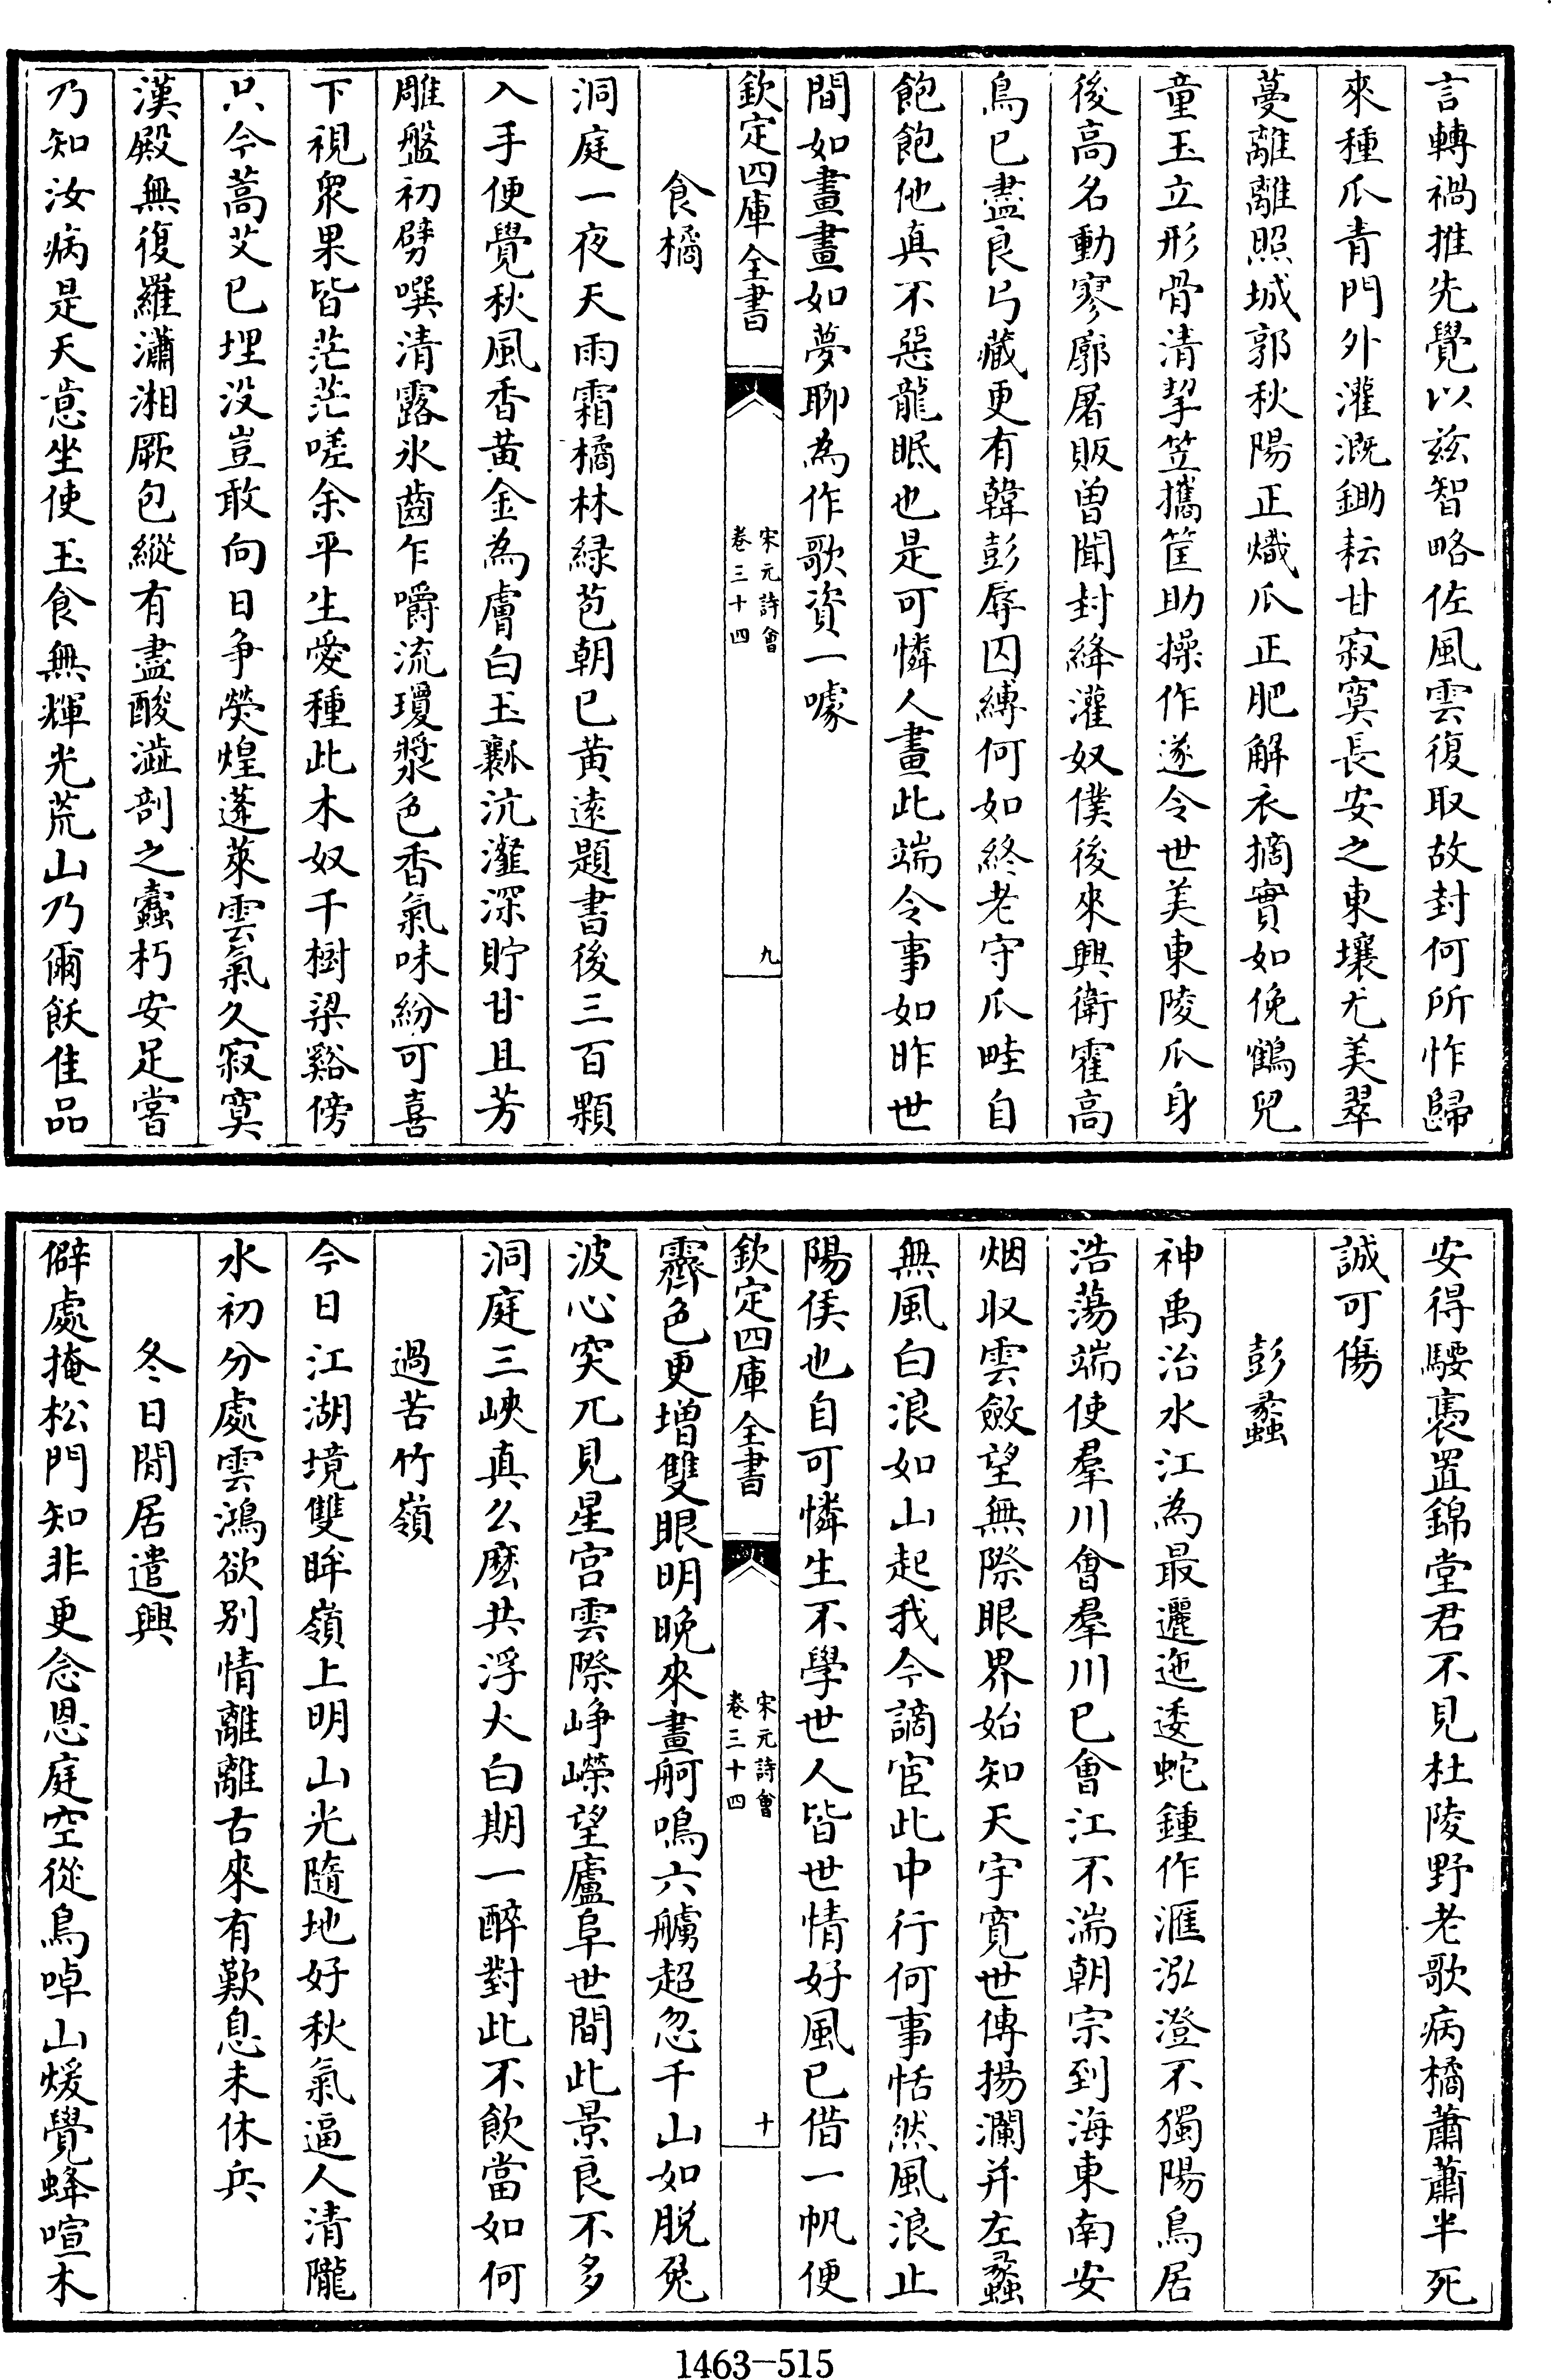 言轉禍推先覺以兹智略佐風雲復取故封何所怍歸
來種瓜青門外灌溉鋤耘甘寂寞長安之東壤尤美翠
蔓離離照城郭秋陽正熾瓜正肥解衣摘實如俛鶴兒
童玉立形骨清挈笠攜筐助操作遂令世美東陵瓜身
後高名動寥廓屠販曽聞封絳灌奴僕後來興衛霍高
鳥已盡良弓藏更有韓彭辱囚縛何如終老守瓜畦自
飽飽他真不惡龍眠也是可憐人畫此端令事如昨世
間如畫畫如夢聊為作歌資一噱
欽定四庫全書
宋元詩會
卷三十四
九
食橘
洞庭一夜天雨霜橘林緑苞朝已黄逺題書後三百顆
入手便覺秋風香黄金為膚白玉瓤沆瀣深貯甘且芳
雕盤初劈噀清露氷齒乍嚼流瓊漿色香氣味紛可喜
下視衆果皆茫茫嗟余平生愛種此木奴千樹梁谿傍
只今蒿艾已埋没豈敢向日争熒煌蓬萊雲氣久寂寞
漢殿無復羅瀟湘厥包縱有盡酸澁剖之蠧朽安足嘗
乃知汝病是天意坐使玉食無輝光荒山乃爾飫佳品
安得騕褭置錦堂君不見杜陵野老歌病橘蕭蕭半死
誠可傷
彭蠡
神禹治水江為最邐迤逶蛇鍾作滙泓澄不獨陽鳥居
浩蕩端使羣川會羣川已會江不湍朝宗到海東南安
烟収雲斂望無際眼界始知天宇寛世傳揚瀾并左蠡
無風白浪如山起我今謫宦此中行何事恬然風浪止
陽侯也自可憐生不學世人皆世情好風已借一帆便
欽定四庫全書
宋元詩會
卷三十四
十
霽色更增雙眼明晚來畫舸鳴六艣超忽千山如脱兔
波心突兀見星宫雲際崢嶸望廬阜世間此景良不多
洞庭三峽真么麽共浮大白期一醉對此不飲當如何
過苦竹嶺
今日江湖境雙眸嶺上明山光隨地好秋氣逼人清隴
水初分處雲鴻欲别情離離古來有歎息未休兵
冬日閒居遣興
僻處掩松門知非更念恩庭空從鳥啅山煖覺蜂喧木
1463-515